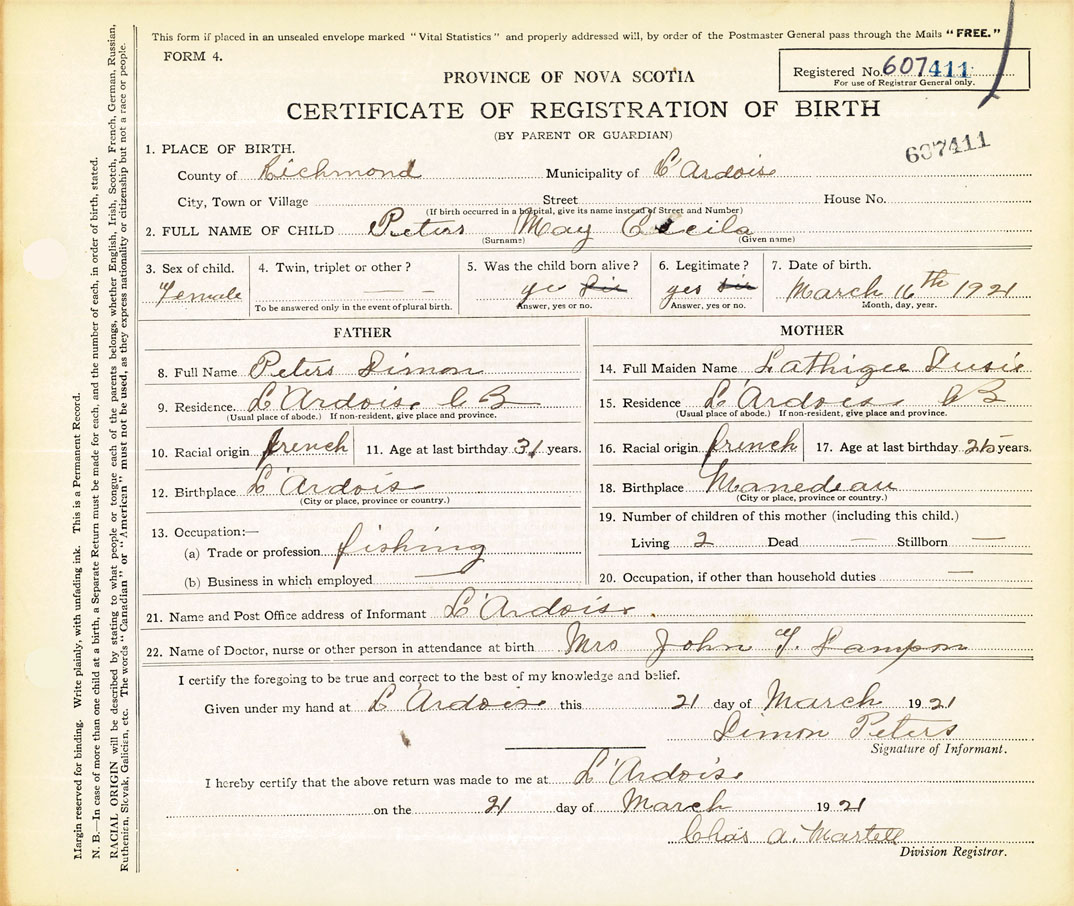 This form if placed in an unsealed envelope marked "Vital Statistics" and properly addressed will, by order of the Postmaster General pass through the Mails "FREE."
FORM 4.
Registered No. 607411
For use of Registrar General only.
PROVINCE OF NOVA SCOTIA
CERTIFICATE OF REGISTRATION OF BIRTH
(BY PARENT OR GUARDIAN)
607411
1. PLACE OF BIRTH.
County of Richmond Municipality of L'Ardois
City, Town or Village Street House No.
(If birth occurred in a hospital, give its name instead of Street and Number)
2. FULL NAME OF CHILD Peters May Cecila
(Surname) (Given name)
3. Sex of child. 4. Twin, triplet or other? 5. Was the child born alive? 6. Legitimate? 7. Date of birth.
Female — — yes yes March 16th 1921
To be answered only in the event of plural birth. Answer, yes or no. Answer, yes or no. Month, day, year.
FATHER
8. Full Name Peters Simon
9. Residence. L'Ardoise C B
(Usual place of abode.) If non-resident, give place and province.
10. Racial origin french 11. Age at last birthday 31 years.
12. Birthplace L'Ardois
(City or place, province or country.)
13. Occupation:—
(a) Trade or profession fishing
(b) Business in which employed —
MOTHER
14. Full Maiden Name Lathigee Susie
15. Residence L'Ardoise C B
(Usual place of abode.) If non-resident, give place and province.
16. Racial origin french 17. Age at last birthday 25 years.
18. Birthplace
(City or place, province or country.)
19. Number of children of this mother (including this child.)
Living 2 Dead — Stillborn —
20. Occupation, if other than household duties —
21. Name and Post Office address of Informant L'Ardoise.
22. Name of Doctor, nurse or other person in attendance at birth Mrs John T. Sampson
I certify the foregoing to be true and correct to the best of my knowledge and belief.
Given under my hand at L'Ardoise this 21 day of March 1921
Simon Peters
Signature of Informant.
I hereby certify that the above return was made to me at L'Ardoise
on the 21 day of March 1921
Chas A. Martell
Division Registrar.
Margin reserved for binding. Write plainly, with unfading ink. This is a Permanent Record.
N. B.—In case of more than one child at a birth, a Separate Return must be made for each, and the number of each, in order of birth, stated.
RACIAL ORIGIN will be described by stating to what people or tongue each of the parents belongs, whether English, Irish, Scotch, French, German, Russian,
Ruthenien, Slovak, Galicien, etc. The words "Canadian" or "American" must not be used, as they express nationality or citizenship but not a race or people.